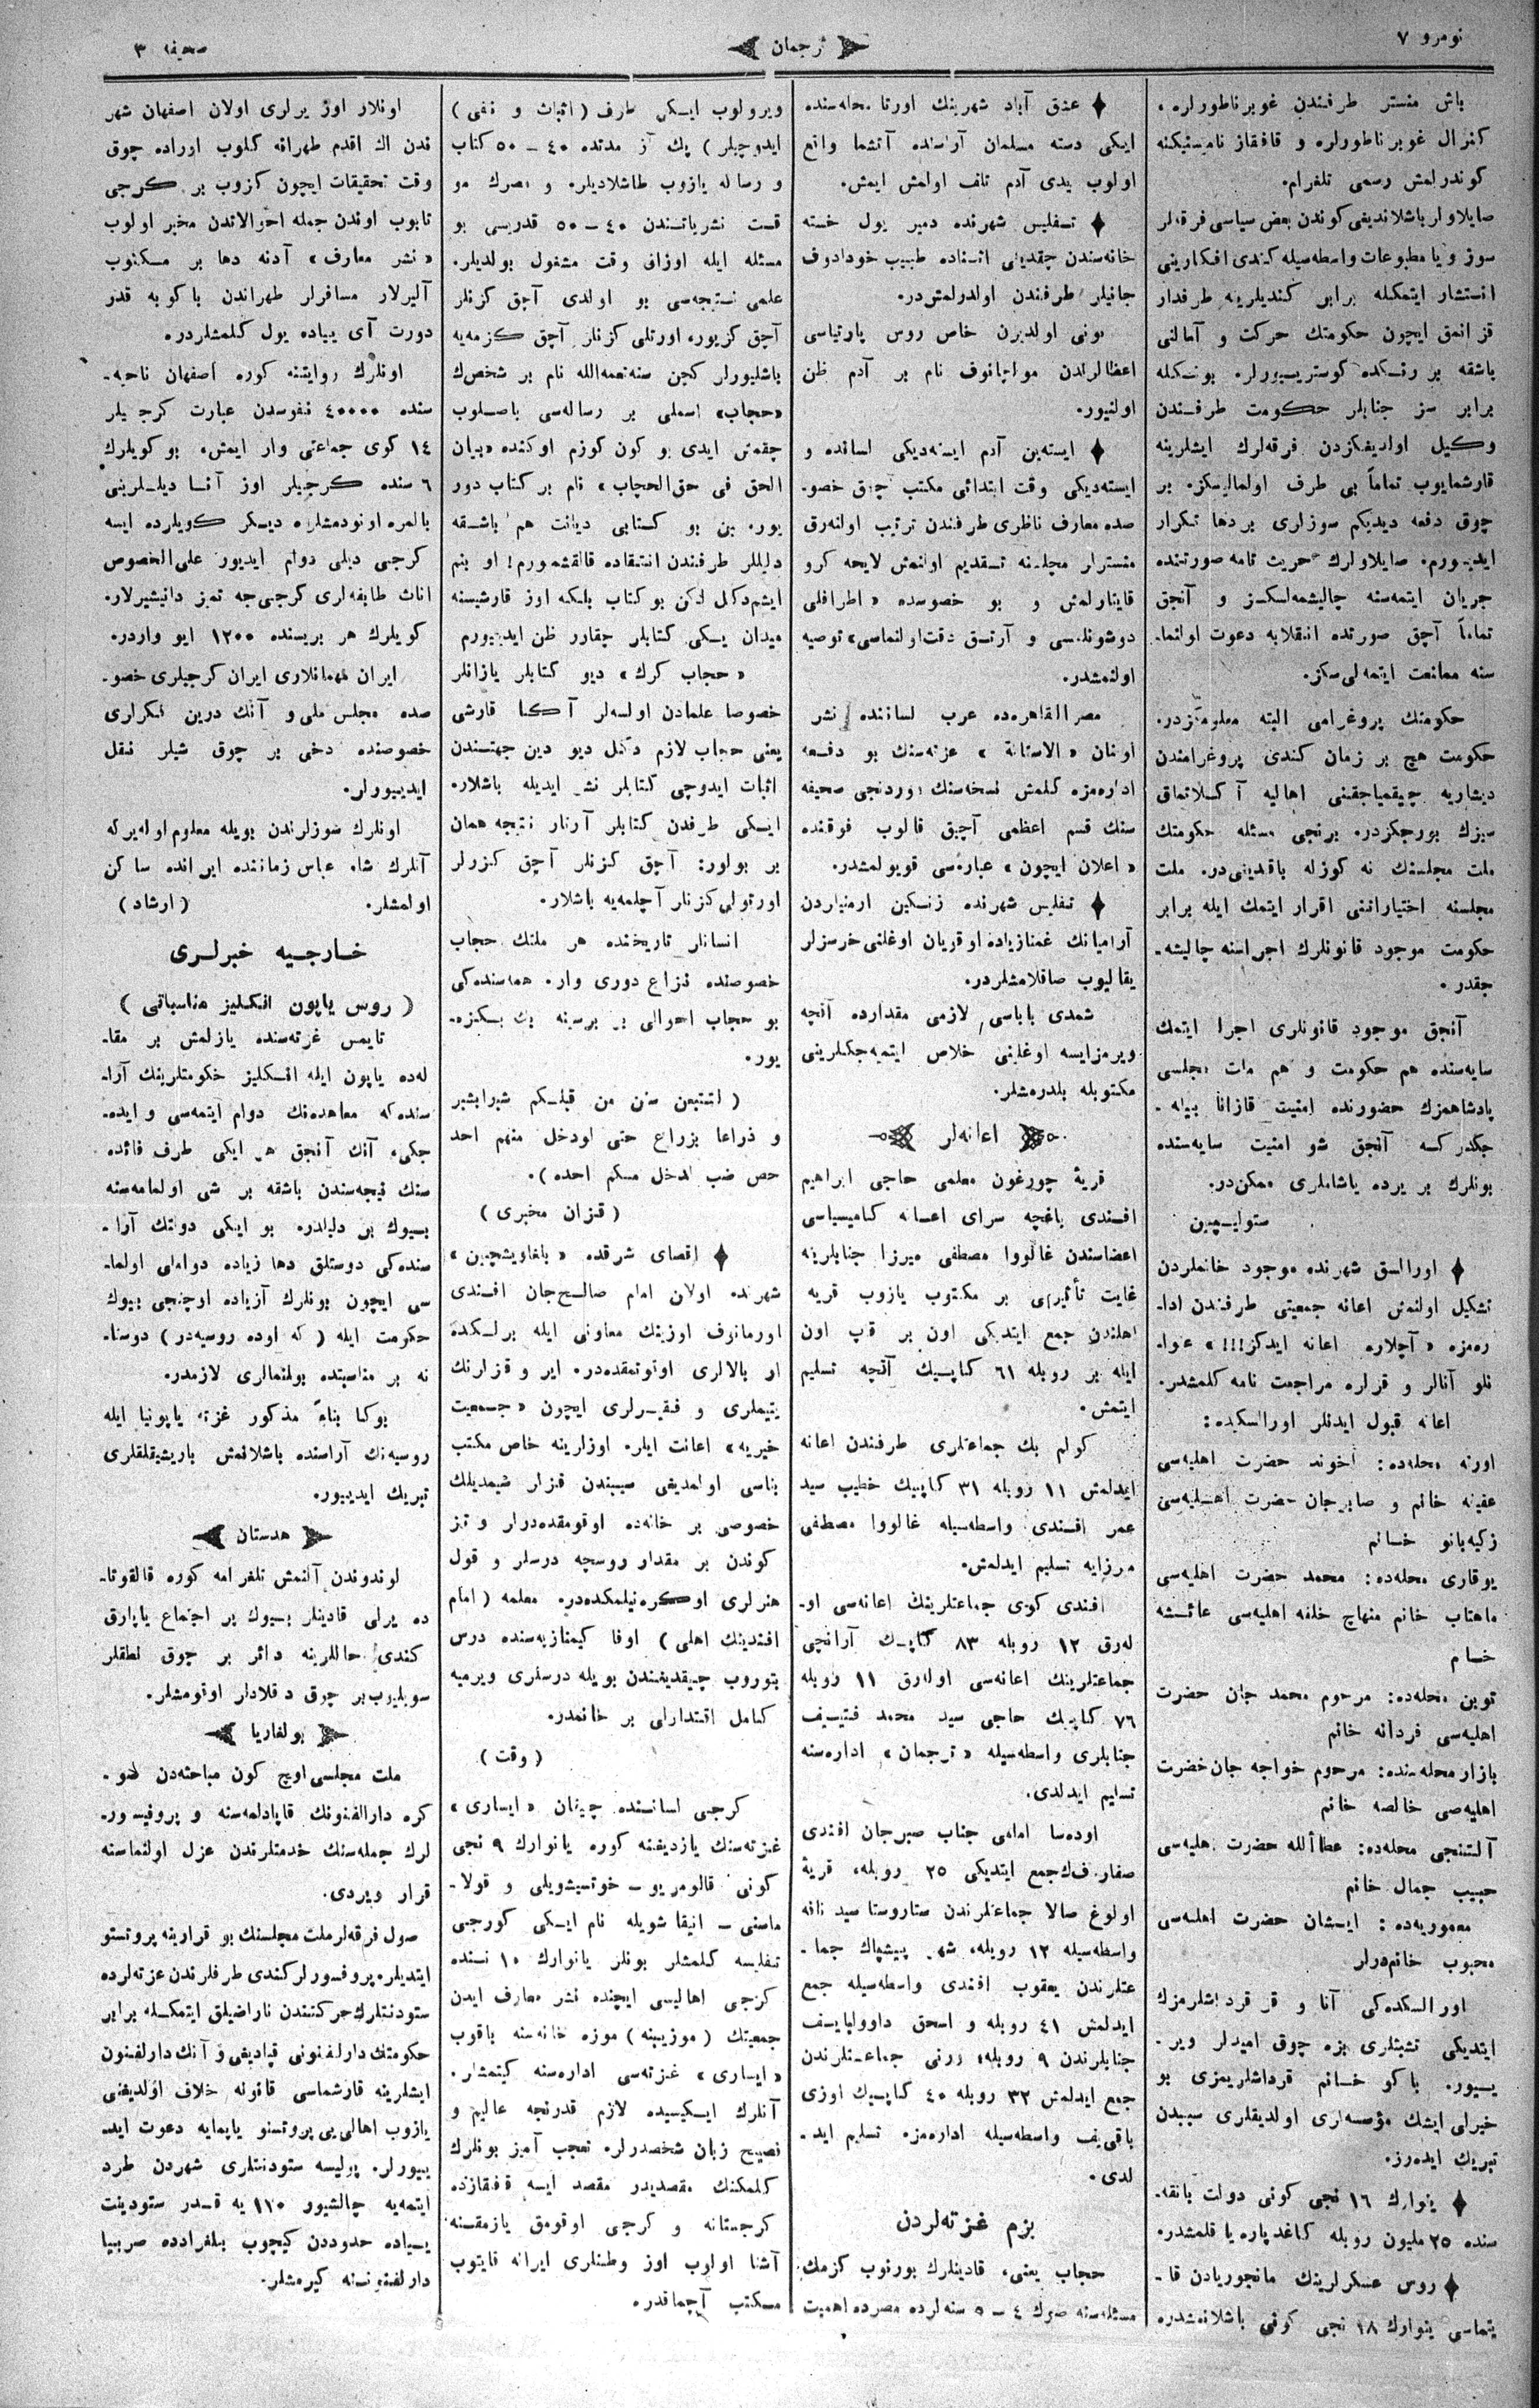 نومرو ٧
ترجمان
صحیفه ٣
باش منستر طرفندن غوبرناطورلره،
گنرال غوبرناطورلره و قافقاز نامیستنیکنه
کوندرلمش رسمی تلغرام.
صایلاولر باشلاندیغی کوندن بعض سیاسی فرقه‌لر
سوز و یا مطبوعات واسطه‌سیله کندی افکارینی
انتشار ایتمکله برابر کندیلرینه طرفدار
قزانمق ایچون حکومتك حرکت و آمالنی
باشقه بر رنکده کوستریییورلر. بونکله
برابر سز جنابلر حکومت طرفندن
وکیل اولدیغکزدن فرقه‌لرك ایشلرینه
قارشمایوب تماماً بی طرف اولمالیسکز. بر
چوق دفعه دیدیکم سوزلری بر دها تکرار
ایدییورم. صایلاولرك حریت تامه صورتنده
جریان ایتمه‌سنه چالیشمه‌لیسکز و آنجق
تماماً آچق صورتده انقلابه دعوت اولنما-
سنه ممانعت ایتمه‌لی‌سکز.
حکومتك پروغرامی البته معلومکزدر.
حکومت هیچ بر زمان کندی پروغرامندن
دیشاریه چیقمیاجقینی اهالیه آکلاتماق
سیزك بورجکزدر. برنجی مسئله حکومتك
ملت مجلسنك نه کوزله باقدیغی‌در. ملت
مجلسنه اختیاراتنی اقرار ایتمك ایله برابر
حکومت موجود قانونلرك اجراسنه چالیشه-
جقدر.
آنجق موجود قانونلری اجرا ایتمك
سایه‌سنده هم حکومت و هم ملت مجلسی
پادشاهمزك حضورنده امنیت قازانا بیله-
جکدر که آنجق شو امنیت سایه‌سنده
بونلرك بر یرده یاشاملری ممکن‌در.
ستولیپین
اورالسق شهرنده موجود خانملردن
تشکیل اولنمش اعانه جمعیتی طرفندن ادا-
ره‌مزه «آچلاره اعانه ایدکز!!!» عنوا-
نلو آنالر و قزلره مراجعت نامه کلمشدر.
اعانه قبول ایدنلر اورالسکیده:
اورته محله‌ده: آخوند حضرت اهلیه‌سی
عفیفه خانم و صابرجان حضرت اهلیه‌سی
زکیه‌بانو خانم
یوقاری محله‌ده: محمد حضرت اهلیه‌سی
ماهتاب خانم منهاج خلفه اهلیه‌سی عائشه
خانم
توبن محله‌ده: مرحوم محمد جان حضرت
اهلیه‌سی فردانه خانم
بازار محله‌سنده: مرحوم خواجه جان حضرت
اهلیه‌سی خالصه خانم
آلتنجی محله‌ده: عطاالله حضرت اهلیه‌سی
حبیب جمال خانم
معموریه‌ده: ایشان حضرت اهلیه‌سی
محبوب خانم‌درلر
اورالسکده‌کی آنا و قز قرداشلرمزك
ایتدیکی تشبثلری بزه چوق امیدلر ویر-
ییور. باکو خانم قرداشلریمزی بو
خیرلی ایشك مؤسسه‌لری اولدیقلری سببدن
تبریك ایده‌رز.
ینوارك ١٦ نجی کونی دولت بانقه-
سنده ٢٥ ملیون روبله کاغد پاره یاقلمشدر.
روس عسکرلرینك مانجوریادن قا-
یتماسی ینوارك ١٨ نجی کونی باشلانمشدر.
عشق آباد شهرینك اورتا محله‌سنده
ایکی دسته مسلمان آراسنده آتشما واقع
اولوب یدی آدم تلف اولمش ایمش.
تفلیس شهرنده دمیر یول خسته
خانه‌سندن چقدیغی اثناده طبیب خودادوف
جانیلر طرفندن اولدرلمش‌در.
بونی اولدیرن خاص روس پارتیاسی
اعضالرندن مواچانوف نام بر آدم ظن
اولنیور.
ایسته‌ین آدم ایسته‌دیکی لسانده و
ایسته‌دیکی وقت ابتدائی مکتب آچق خصو-
صده معارف ناظری طرفندن ترتیب اولنه‌رق
منسترلر مجلسنه تقدیم اولنمش لایحه کرو
قایتارلمش و بو خصوصده «اطرافلی
دوشونلمسی و آرتق دقت اولنماسی» توصیه
اولنمشدر.
مصر القاهره‌ده عرب لساننده نشر
اولنان «الاستانة» غزته‌سنك بو دفعه
اداره‌مزه کلمش نسخه‌سنك دوردنجی صحیفه
سنك قسم اعظمی آچق قالوب فوقنده
«اعلان ایچون» عباره‌سی قویولمشدر.
تفلیس شهرنده زنکین ارمنیلردن
آرامیانك غمنازیاده اوقویان اوغلنی خرسزلر
یقالیوب صاقلامشلردر.
شمدی باباسی لازمی مقدارده آقچه
ویرمزایسه اوغلینی خلاص ایتمیه‌جکلرینی
مکتوبله بلدرمشلر.
اعانه‌لر
قریهٔ چورغون معلمی حاجی ابراهیم
افندی باغچه سرای اعانه کامیسیاسی
اعضاسندن غالووا مصطفی میرزا جنابلرینه
غایت تأثیرلی بر مکتوب یازوب قریه
اهلندن جمع ایتدیکی اون بر قپ اون
ایله بر روبله ٦١ کاپیك آقچه تسلیم
ایتمش.
کولم بك جماعتلری طرفندن اعانه
ایدلمش ١١ روبله ٣١ کاپیك خطیب سید
عمر افندی واسطه‌سیله غالووا مصطفی
مرزایه تسلیم ایدلمش.
افندی کوی جماعتلرینك اعانه‌سی او-
له‌رق ١٢ روبله ٨٣ کاپیك آرانچی
جماعتلرینك اعانه‌سی اوله‌رق ١١ روبله
٧٦ کاپیك حاجی سید محمد فتییف
جنابلری واسطه‌سیله «ترجمان» اداره‌سنه
تسلیم ایدلدی.
اوده‌سا امامی جناب صبرجان افندی
صفاروف‌ك جمع ایتدیکی ٢٥ روبله، قریهٔ
اولوغ صالا جماعتلرندن ستاروستا سید نافه
واسطه‌سیله ١٢ روبله، شهر پیشپاك جما-
عتلرندن یعقوب افندی واسطه‌سیله جمع
ایدلمش ٤١ روبله و اسحق داوولیایف
جنابلرندن ٩ روبله، ورنی جماعتلرندن
جمع ایدلمش ٣٢ روبله ٤٠ کاپیك اوزی
باقییف واسطه‌سیله اداره‌مزه تسلیم اید-
لدی.
بزم غزته‌لردن
حجاب یعنی، قادینلرك بورنوب کزمك
مسئله‌سنه صوك ٤ – ٥ سنه‌لرده مصرده اهمیت
ویرولوب ایکی طرف (اثبات و نفی)
ایدوچیلر) پك آز مدتده ٤٠ – ٥٠ کتاب
و رساله یازوب طاشلادیلر. و مصرك مو
قت نشریاتندن ٤٠ – ٥٠ قدریسی بو
مسئله ایله اوزاق وقت مشغول بولدیلر.
علمی نتیجه‌سی بو اولدی آچق کزنلر
آچق کزیور، اورتلی کزنلر آچق کزمه‌یه
باشلیورلر کچن سنه نعمه‌الله نام بر شخص‌ك
«حجاب» اسملی بر رساله‌سی باصلوب
چقمش ایدی بو کون کوزم اوکنده «بیان
الحق فی حق الحجاب» نام بر کتاب دور
یور. بن بو کتابی دیانت هم باشقه
دلیللر طرفندن انتقاده قالقشمورم! او بنم
ایشم دکل لکن بو کتاب بلکه اوز قارشیسنه
میدان یکی کتابلر چقارر ظن ایدییورم
«حجاب کرك» دیو کتابلر یازانلر
خصوصا علمادن اولسه‌لر آکا قارشی
یعنی حجاب لازم دکل دیو دین جهتندن
اثبات ایدوچی کتابلر نشر ایدیله باشلار.
ایکی طرفدن کتابلر آرتار نتیجه همان
بر بولور: آچق کزنلر آچق کزرلر
اورتولی کزنلر آچلمه‌یه باشلار.
انسانلر تاریخنده هر ملتك حجاب
خصوصنده نزاع دوری وار. همه‌سنده‌کی
بو حجاب احوالی بر برسینه پك بکزه-
یور.
(لتتبعن سنن من قبلکم شبرا بشبر
و ذراعا بزراع حتی لودخل منهم احد
حص ضب لدخل منکم احده).
(قزان مخبری)
اقصای شرقده «بلغاویشچین»
شهرنده اولان امام صالح‌جان افندی
اورمانوف اوزینك معاونی ایله برلکده
ار بالالری اوتوتمقده‌در. ایر و قزلرنك
یتیملری و فقیرلری ایچون «جمعیت
خیریه» اعانت ایلر. اوزلرینه خاص مکتب
بناسی اولمدیغی سببندن قزلر شیمدیلك
خصوصی بر خانه‌ده اوقومقده‌درلر و تیز
کوندن بر مقدار روسچه درسلر و قول
هنرلری اوکره‌نیلمکده‌در. معلمه (امام
افندینك اهلی) اوفا کیمنازیه‌سنده درس
بتوروب چیقدیغندن بویله درسلری ویرمیه
کامل اقتدارلی بر خانمدر.
(وقت)
کرجی لسانسنده چیقان «ایساری»
غزته‌سنك یازدیغنه کوره یانوارك ٩ نجی
کونی قالومریو – خوتسیشویلی و قولا-
ماسنی – انیقا شویله نام ایکی کورجی
تفلیسه کلمشلر بونلر یانوارك ١٠ نسنده
کرجی اهالیسی ایچنده نشر معارف ایدن
جمعیتك (موزیینه) موزه خانه‌سنه باقوب
«ایساری» غزته‌سی اداره‌سنه کیتمشلر.
آنلرك ایکیسیده لازم قدرنجه عالم و
فصیح زبان شخصدرلر. تعجب آمیز بونلرك
کلمکنك مقصدیدر مقصد ایسه قفقازده
کرجستانه و کرجی اوقومق یازمقنه
آشنا اولوب اوز وطنلری ایرانه قایتوب
مکتب آچماقدر.
اونلار اوز یرلری اولان اصفهان شهر
ندن اك اقدم طهرانه کلوب اوراده چوق
وقت تحقیقات ایچون کزوب بر کرجی
تابوب اوندن جمله احوالاتدن مخبر اولوب
«نشر معارف» آدنه دها بر مکتوب
آلیرلار مسافرلر طهراندن باکویه قدر
دورت آی پیاده یول کلمشلردر.
اونلرك روایتنه کوره اصفهان ناحیه-
سنده ٤٠٠٠٠ نفوسدن عبارت کرجیلر
١٤ کوی جماعتی وار ایمش. بو کویلرك
٦ سنده کرجیلر اوز آنا دیللرینی
بالمره اونودمشلر، دیکر کویلرده ایسه
کرجی دیلی دوام ایدیور علی‌الخصوص
اناث طایفه‌لری کرجی‌جه تمیز دانیشیرلار.
کویلرك هر بریسنده ١٢٠٠ ایو واردر.
ایران مهمانلاری ایران کرجیلری خصو-
صده مجلس ملی و آنك درین فکرلری
خصوصنده دخی بر چوق شیلر نقل
ایدییورلر.
اونلرك سوزلرندن بویله معلوم اولیر که
آنلرك شاه عباس زماننده ایرانده ساکن
اولمشلر. (ارشاد)
خارجیه خبرلری
(روس یاپون انکلیز مناسباتی)
تایمس غزته‌سنده یازلمش بر مقا-
له‌ده یاپون ایله انکلیز حکومتلرینك آرا-
سنده‌که معاهده‌نك دوام ایتمه‌سی و ایده-
جکی، آنك آنجق هر ایکی طرف فائده
سنك نتیجه‌سندن باشقه بر شی اولمامه‌سنه
بیوك بر دلیلدر. بو ایکی دولتك آرا-
سنده‌کی دوستلق دها زیاده دواملی اولما-
سی ایچون بونلرك آزیاده اوچنجی بیوك
حکومت ایله (که اوده روسیه‌در) دوستا-
نه بر مناسبتده بولنمالری لازمدر.
بوکا بناءً مذکور غزته یاپونیا ایله
روسیه‌نك آراسنده باشلانمش باریشیقلقلری
تبریك ایدییور.
هندستان
لوندوندن آلنمش تلغرامه کوره قالقوتا-
ده یرلی قادینلر بیوك بر اجتماع یاپارق
کندی حاللرینه دائر بر چوق نطقلر
سویلیوب بر چوق دقلادلر اوقومشلر.
بولغاریا
ملت مجلسی اوچ کون مباحثه‌دن صو-
کره دارالفنونك قاپادلمه‌سنه و پروفیسور-
لرك جمله‌سنك خدمتلرندن عزل اولنماسنه
قرار ویردی.
صول فرقه‌لر ملت مجلسنك بو قرارینه پروتستو
ایتدیلر. پروفسورلر کندی طرفلرندن غزته‌لرده
ستودنتلرك حرکتندن ناراضیلق ایتمکله برابر
حکومتك دارلفنونی قپادیغی و آنك دارلفنون
ایشلرینه قارشماسی قانونه خلاف اولدیغنی
یازوب اهالی‌یی پروتستو یاپمایه دعوت اید-
ییورلر. پولیسه ستودنتلری شهردن طرد
ایتمه‌یه چالشیور ١٧٠ یه قدر ستودینت
پیاده حدوددن کیچوب بلغرادده صربیا
دارلفنونینه کیرمشلر.